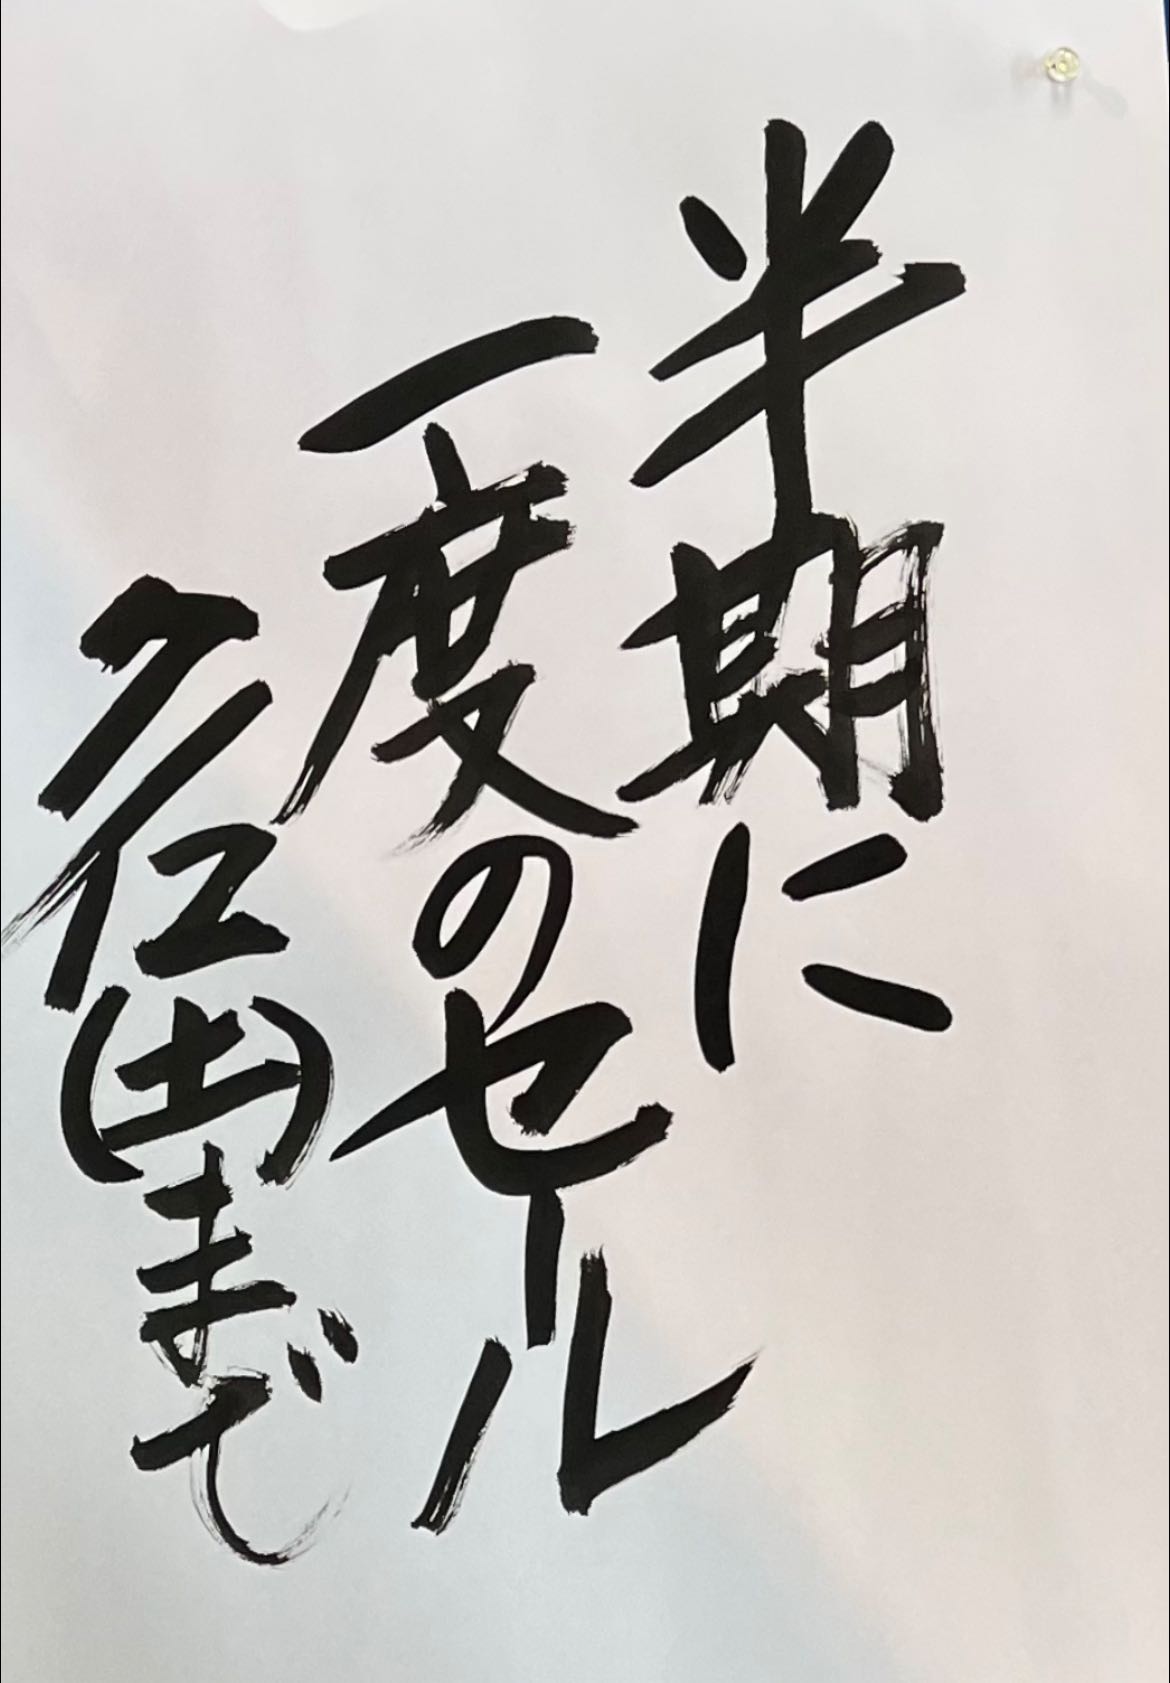 半期に
一度のセール
7/12(土)まで